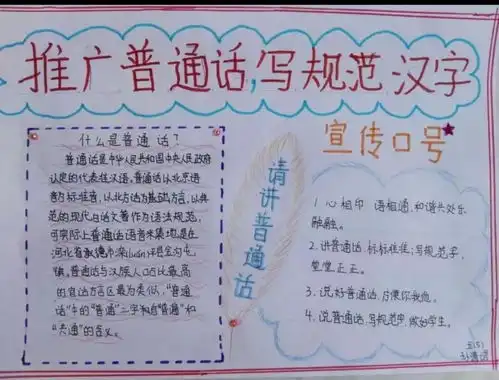 推广普通话,写规范汉字
什么是普通话?
普通话是中华人民共和国中央人民政府
认定的代表性汉语,普通话以北京语
音为标准音,以北方话为基础方言,以典
范的现代白话文著作为语法规范。
可实际上普通话语音采集地是在
河北省承德市滦(luán)平县金沟屯
镇,普通话与汉族人口占比最高
的官话方言区最为类似,“普通
话”中的“普通”二字都有“普遍”和
“共通”的含义。
请讲普通话
宣传口号
1. 心相印,语相通,和谐共处乐
融融。
2. 讲普通话,标标准准;写规范字,
堂堂正正。
3. 说好普通话,方便你我他。
4. 说普通话,写规范字,做好学生。
五(5)